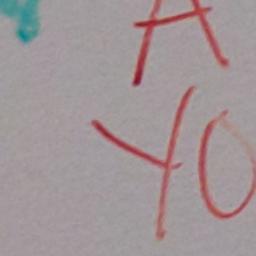 A
YO